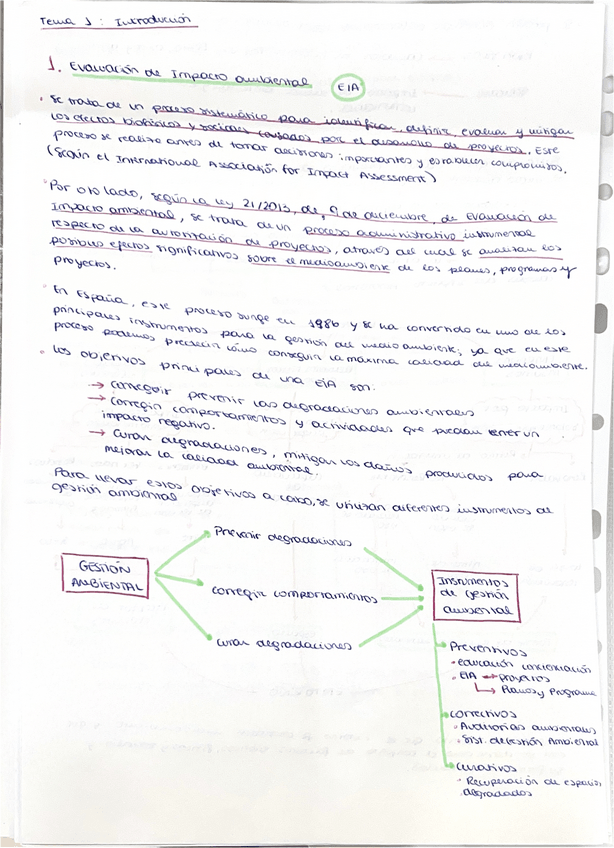 Tema 1 : Introducción
1. Evaluación de Impacto ambiental EIA
· Se trata de un proceso sistemático para identificar, definir, evaluar y mitigar
los efectos biofísicos y sociales causados por el desarrollo de proyectos. Este
proceso se realiza antes de tomar decisiones importantes y establecer compromisos.
(Según el International Association for Impact Assessment)
· Por otro lado, según la ley 21/2013, de 9 de diciembre, de Evaluación de
Impacto ambiental, se trata de un proceso administrativo instrumental
respecto de la autorización de proyectos, através del cual se analizan los
posibles efectos significativos sobre el medioambiente de los planes, programas y
proyectos.
· En España, este proceso surge en 1986 y se ha convertido en uno de los
principales instrumentos para la gestión del medio ambiente; ya que en este
proceso podemos predecir cómo conseguir la máxima calidad del medioambiente.
· Los objetivos principales de una EIA son:
→ Conseguir prevenir las degradaciones ambientales
→ Corregir comportamientos y actividades que puedan tener un
impacto negativo.
→ Curar degradaciones, mitigar los daños producidos para
mejorar la calidad ambiental.
Para llevar estos objetivos a cabo, se utilizan diferentes instrumentos de
gestión ambiental
GESTIÓN
AMBIENTAL
Prevenir degradaciones
corregir comportamientos
curar degradaciones
Instrumentos
de gestión
ambiental
Preventivos
· educación concienciación
· EIA → proyectos
→ Planes y Programa
correctivos
· Auditorías ambientales
· Sist. de Gestión Ambiental
curativos
· Recuperación de espacios
degradados